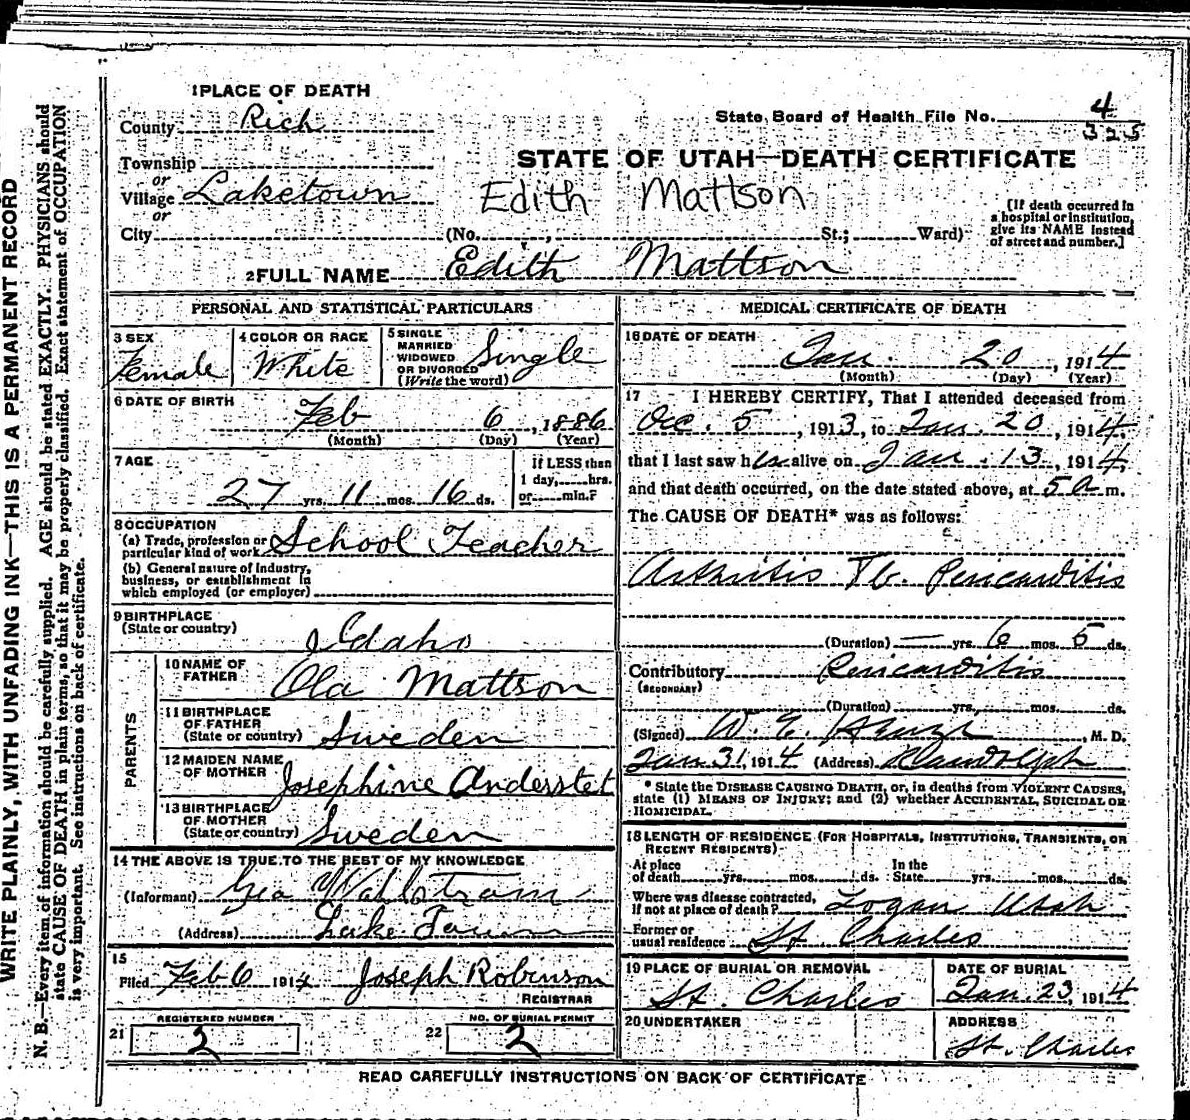 1 PLACE OF DEATH
County Rich
State Board of Health File No. 4
325
Township
or
Village Laketown
or
City
STATE OF UTAH—DEATH CERTIFICATE
Edith Mattson
(No. , St.; Ward)
[If death occurred in a hospital or institution, give its NAME instead of street and number.]
2 FULL NAME Edith Mattson
PERSONAL AND STATISTICAL PARTICULARS
3 SEX
Female
4 COLOR OR RACE
White
5 SINGLE
MARRIED
WIDOWED
OR DIVORCED
(Write the word)
Single
6 DATE OF BIRTH
Feb 6, 1886
(Month) (Day) (Year)
7 AGE
27 yrs. 11 mos. 16 ds.
If LESS than
1 day, hrs.
or min.?
8 OCCUPATION
(a) Trade, profession or
particular kind of work School Teacher
(b) General nature of industry,
business, or establishment in
which employed (or employer)
9 BIRTHPLACE
(State or country) Idaho
PARENTS
10 NAME OF
FATHER Ola Mattson
11 BIRTHPLACE
OF FATHER
(State or country) Sweden
12 MAIDEN NAME
OF MOTHER Josephine Anderstet
13 BIRTHPLACE
OF MOTHER
(State or country) Sweden
14 THE ABOVE IS TRUE TO THE BEST OF MY KNOWLEDGE
(Informant) Geo Wahlstrom
(Address) Lake Town
15
Filed Feb 6 1914 Joseph Robinson
REGISTRAR
REGISTERED NUMBER
21 2
NO. OF BURIAL PERMIT
22 2
MEDICAL CERTIFICATE OF DEATH
16 DATE OF DEATH
Jan. 20, 1914
(Month) (Day) (Year)
17 I HEREBY CERTIFY, That I attended deceased from
Dec. 5, 1913, to Jan. 20, 1914,
that I last saw her alive on Jan. 13, 1914,
and that death occurred, on the date stated above, at 5 a m.
The CAUSE OF DEATH* was as follows:
Arthritis Tb. Pericarditis
(Duration) — yrs. 6 mos. 5 ds.
Contributory Pericarditis
(SECONDARY)
(Duration) yrs. mos. ds.
(Signed) W. E. , M. D.
Jan 31, 1914 (Address) Randolph
* State the DISEASE CAUSING DEATH, or, in deaths from VIOLENT CAUSES,
state (1) MEANS OF INJURY; and (2) whether ACCIDENTAL, SUICIDAL OR
HOMICIDAL.
18 LENGTH OF RESIDENCE (FOR HOSPITALS, INSTITUTIONS, TRANSIENTS, OR
RECENT RESIDENTS)
At place
of death yrs. mos. ds.
In the
State yrs. mos. ds.
Where was disease contracted,
if not at place of death? Logan Utah
Former or
usual residence St. Charles
19 PLACE OF BURIAL OR REMOVAL
St. Charles
DATE OF BURIAL
Jan. 23, 1914
20 UNDERTAKER
ADDRESS
St. Charles
READ CAREFULLY INSTRUCTIONS ON BACK OF CERTIFICATE
WRITE PLAINLY, WITH UNFADING INK—THIS IS A PERMANENT RECORD
N. B.—Every item of information should be carefully supplied. AGE should be stated EXACTLY. PHYSICIANS should
state CAUSE OF DEATH in plain terms, so that it may be properly classified. Exact statement of OCCUPATION
is very important. See instructions on back of certificate.